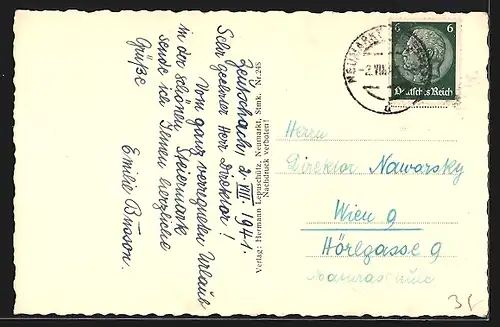 Zeutschach, 2. VIII. 1941.
Sehr geehrter Herr Direktor!
Vom ganz verregneten Urlaub
in der schönen Steiermark
sende ich Ihnen herzliche
Grüße
Emilie Brusson.
Verlag: Hermann Lepuschütz, Neumarkt, Stmk. Nr. 248
Nachdruck verboten!
NEUMARKT
-2.VIII.
a
6 6
Deutsches Reich
Herrn
Direktor Nawarsky
Wien 9
Hörlgasse 9